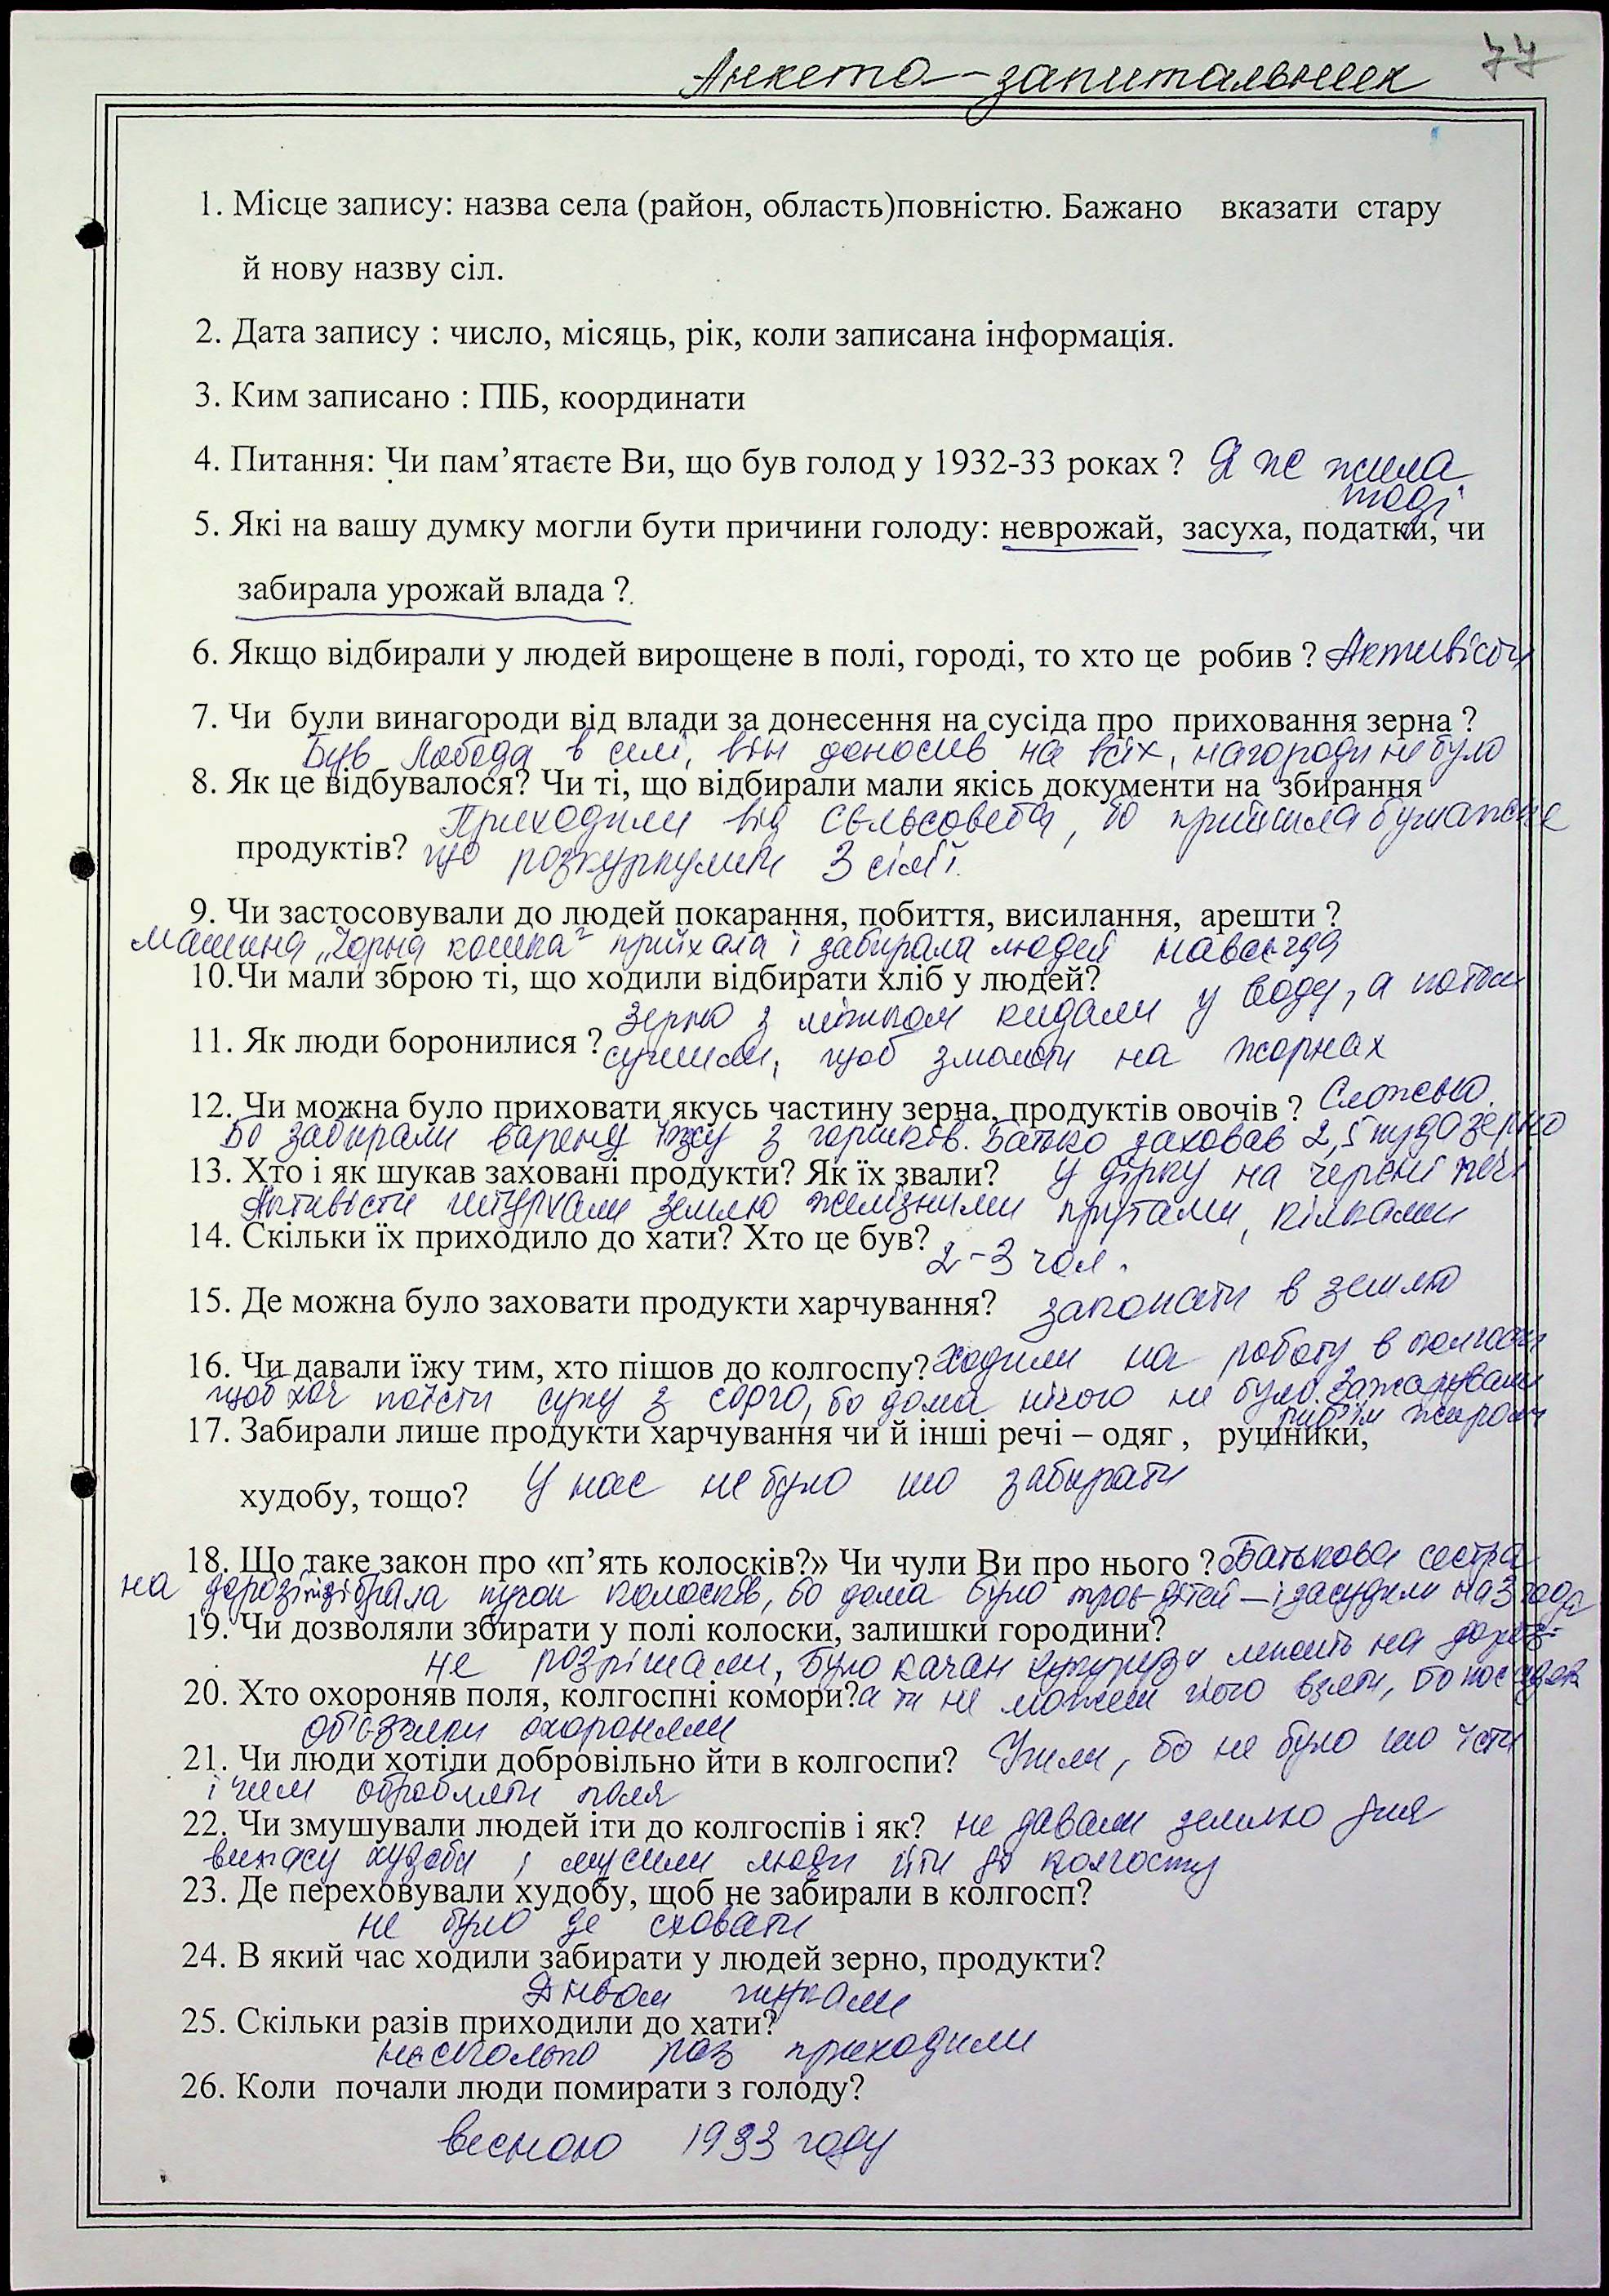 77
Анкета-запитальник
1. Місце запису: назва села (район, область)повністю. Бажано вказати стару
й нову назву сіл.
2. Дата запису : число, місяць, рік, коли записана інформація.
3. Ким записано : ПІБ, координати
4. Питання: Чи пам’ятаєте Ви, що був голод у 1932-33 роках ? Я же жила
тоді
5. Які на вашу думку могли бути причини голоду: неврожай, засуха, податки, чи
забирала урожай влада ?
6. Якщо відбирали у людей вирощене в полі, городі, то хто це робив ? Активісти
7. Чи були винагороди від влади за донесення на сусіда про приховання зерна ?
Був Лобода в селі, він доносив на всіх, нагороди не було
8. Як це відбувалося? Чи ті, що відбирали мали якісь документи на збирання
Приходили від сєльсовета, бо прийшла бумажка
продуктів? що розкуркулити 3 сім'ї.
9. Чи застосовували до людей покарання, побиття, висилання, арешти ?
Машина „Чорна кошка" приїхала і забирала людей навсегда
10.Чи мали зброю ті, що ходили відбирати хліб у людей?
зерно з мішком кидали у воду, а потом
11. Як люди боронилися ? сушили, щоб змолоти на жорнах
12. Чи можна було приховати якусь частину зерна, продуктів овочів ? Сложно.
Бо забирали варену їжу з горшков. Батько заховав 2,5 пуда зерно
13. Хто і як шукав заховані продукти? Як їх звали? у дірку на черені печі
Активісти штурхали землю желізними прутами, кілками
14. Скільки їх приходило до хати? Хто це був? 2-3 чол.
15. Де можна було заховати продукти харчування? закопати в землю
16. Чи давали їжу тим, хто пішов до колгоспу? Ходили на роботу в колгосп
щоб хоч поїсти супу з сорго, бо дома нічого не було. Зажарували
риб'їм жиром
17. Забирали лише продукти харчування чи й інші речі – одяг , рушники,
худобу, тощо? У нас не було шо забирати
18. Що таке закон про «п’ять колосків?» Чи чули Ви про нього ? Батькова сестра
на дорозі підібрала пучок колосків, бо дома було троє дітей – і засудили на 3 года
19. Чи дозволяли збирати у полі колоски, залишки городини?
не розрішали, було качан кукурузи лежить на дорозі
20. Хто охороняв поля, колгоспні комори? а ти не можеш його взяти, бо посадят
об'єзчики охороняли
21. Чи люди хотіли добровільно йти в колгоспи? Ішли, бо не було шо їсти
і чим обробляти поля
22. Чи змушували людей іти до колгоспів і як? не давали землю для
випасу худоби і мусили люди йти до колгоспу
23. Де переховували худобу, щоб не забирали в колгосп?
не було де сховати
24. В який час ходили забирати у людей зерно, продукти?
Днём шукали
25. Скільки разів приходили до хати?
несколько раз приходили
26. Коли почали люди помирати з голоду?
весною 1933 году